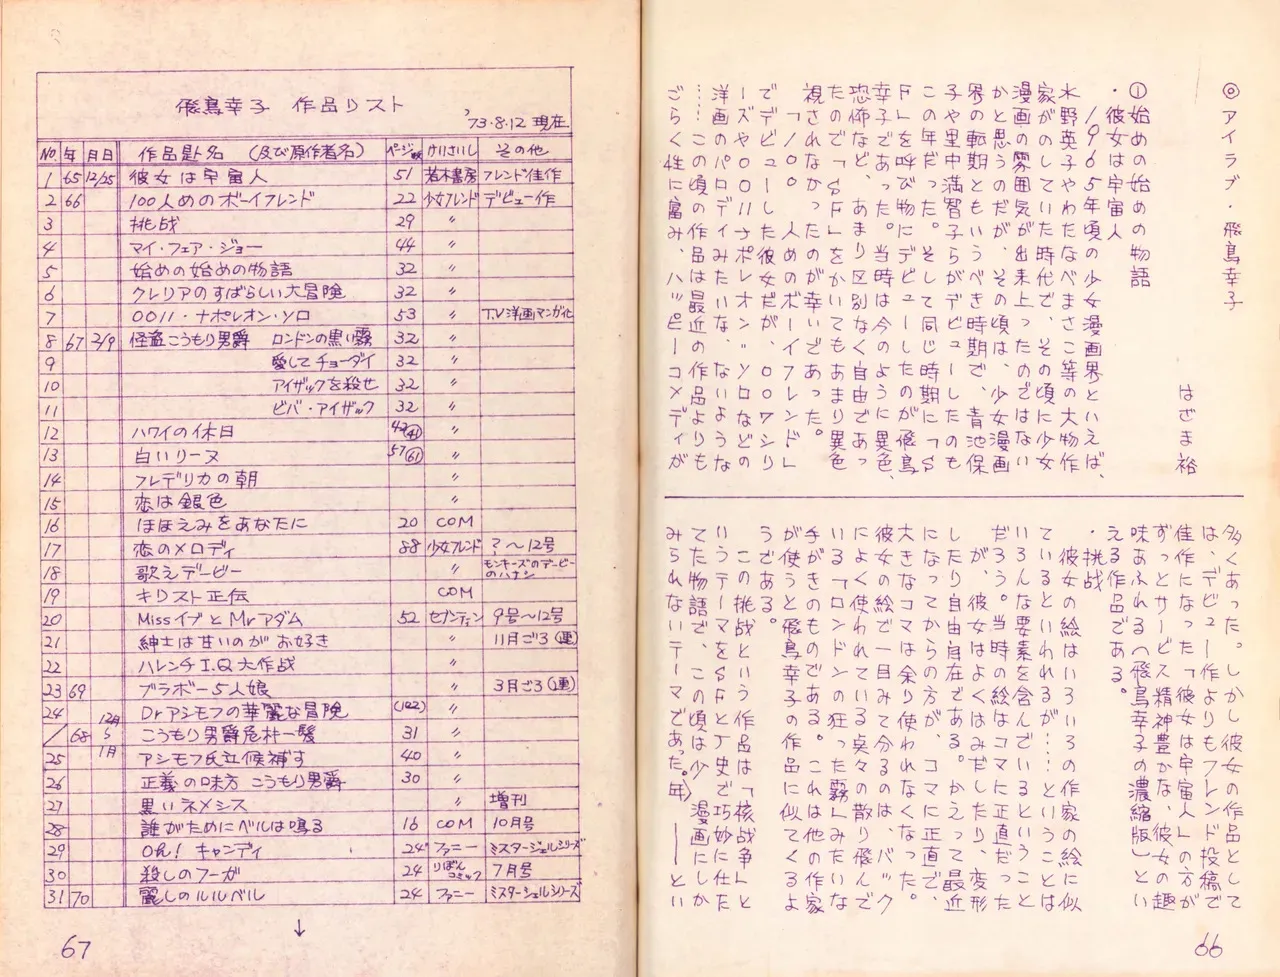 ◎アイラブ・飛鳥幸子
はざま 裕
①始めの始めの物語
・彼女は宇宙人
1965年頃の少女漫画界といえば、
水野英子やわたなべまさこ等の大物作
家がのしていた時代で、その頃に少女
漫画の雰囲気が出来上ったのではない
かと思うのだが、その頃は、少女漫画
界の転期ともいうべき時期で、青池保
子や里中満智子らがデビューしたのも
この年だった。そして同じ時期に「S
F」を呼び物にデビューしたのが飛鳥
幸子であった。当時は今のように異色、
恐怖など、あまり区別なく自由であっ
たので「SF」をかいてもあまり異色
視されなかったのが幸いであった。
「100人めのボーイフレンド」
でデビューした彼女だが、007シリ
ーズや0011ナポレオン・ソロなどの
洋画のパロディみたいな、ないような
……この頃の作品は最近の作品よりも
ごらく性に富み、ハッピーコメディが
多くあった。しかし彼女の作品として
は、デビュー作よりもフレンド投稿で
佳作になった「彼女は宇宙人」の方が
ずっとサービス精神豊かな、彼女の趣
味あふれる〈飛鳥幸子の濃縮版〉とい
える作品である。
・挑戦
彼女の絵はいろいろの作家の絵に似
ているといわれるが……ということは
いろんな要素を含んでいるということ
だろう。当時の絵はコマに正直だった
が、彼女はよくはみだしたり、変形
したり自由自在である。かえって最近
になってからの方が、コマに正直で、
大きなコマは余り使われなくなった。
彼女の絵で一目みて分るのは、バック
によく使われている点々の散り飛んで
いる「ロンドンの狂った霧」みたいな
手がきのものである。これは他の作家
が使うと飛鳥幸子の作品に似てくるよ
うである。
この挑戦という作品は「核戦争」と
いうテーマをSFとJ史で巧妙に仕た
てた物語で、この頃は少年漫画にしか
みられないテーマであった。――とい
66
飛鳥幸子 作品リスト
'73.8.12 現在
No. 年 月日 作品名 (及び原作者名) ページ数 けいさいし その他
1 65 12/25 彼女は宇宙人 51 若木書房 フレンド佳作
2 66 100人めのボーイフレンド 22 少女フレンド デビュー作
3 挑戦 29 〃
4 マイ・フェア・ジョー 44 〃
5 始めの始めの物語 32 〃
6 クレリアのすばらしい大冒険 32 〃
7 0011・ナポレオン・ソロ 53 〃 T.V洋画マンガ化
8 67 2/9 怪盗こうもり男爵 ロンドンの黒い霧 32 〃
9 愛してチョーダイ 32 〃
10 アイザックを殺せ 32 〃
11 ビバ・アイザック 32 〃
12 ハワイの休日 42(41) 〃
13 白いリーヌ 57(61) 〃
14 フレデリカの朝 〃
15 恋は銀色 〃
16 ほほえみをあなたに 20 COM
17 恋のメロディ 88 少女フレンド ?〜12号
18 歌えデービー 〃 モンキーズのデービーのハナシ
19 キリスト正伝 COM
20 MissイブとMrアダム 52 セブンティン 9号〜12号
21 紳士は甘いのがお好き 〃 11月ごろ(連)
22 ハレンチI.Q大作戦 〃
23 69 ブラボー5人娘 〃 3月ごろ(連)
24 Drアシモフの華麗な冒険 (122) 〃
/ 68 12月 5 1月 こうもり男爵危朴一髪 31 〃
25 アシモフ氏立候補す 40 〃
26 正義の味方 こうもり男爵 30 〃
27 黒いネメシス 〃 増刊
28 誰がためにベルは鳴る 16 COM 10月号
29 Oh! キャンディ 24 ファニー ミスターシェルシリーズ
30 殺しのフーガ 24 りぼんコミック 7月号
31 70 麗しのルルベル 24 ファニー ミスターシェルシリーズ
↓
67